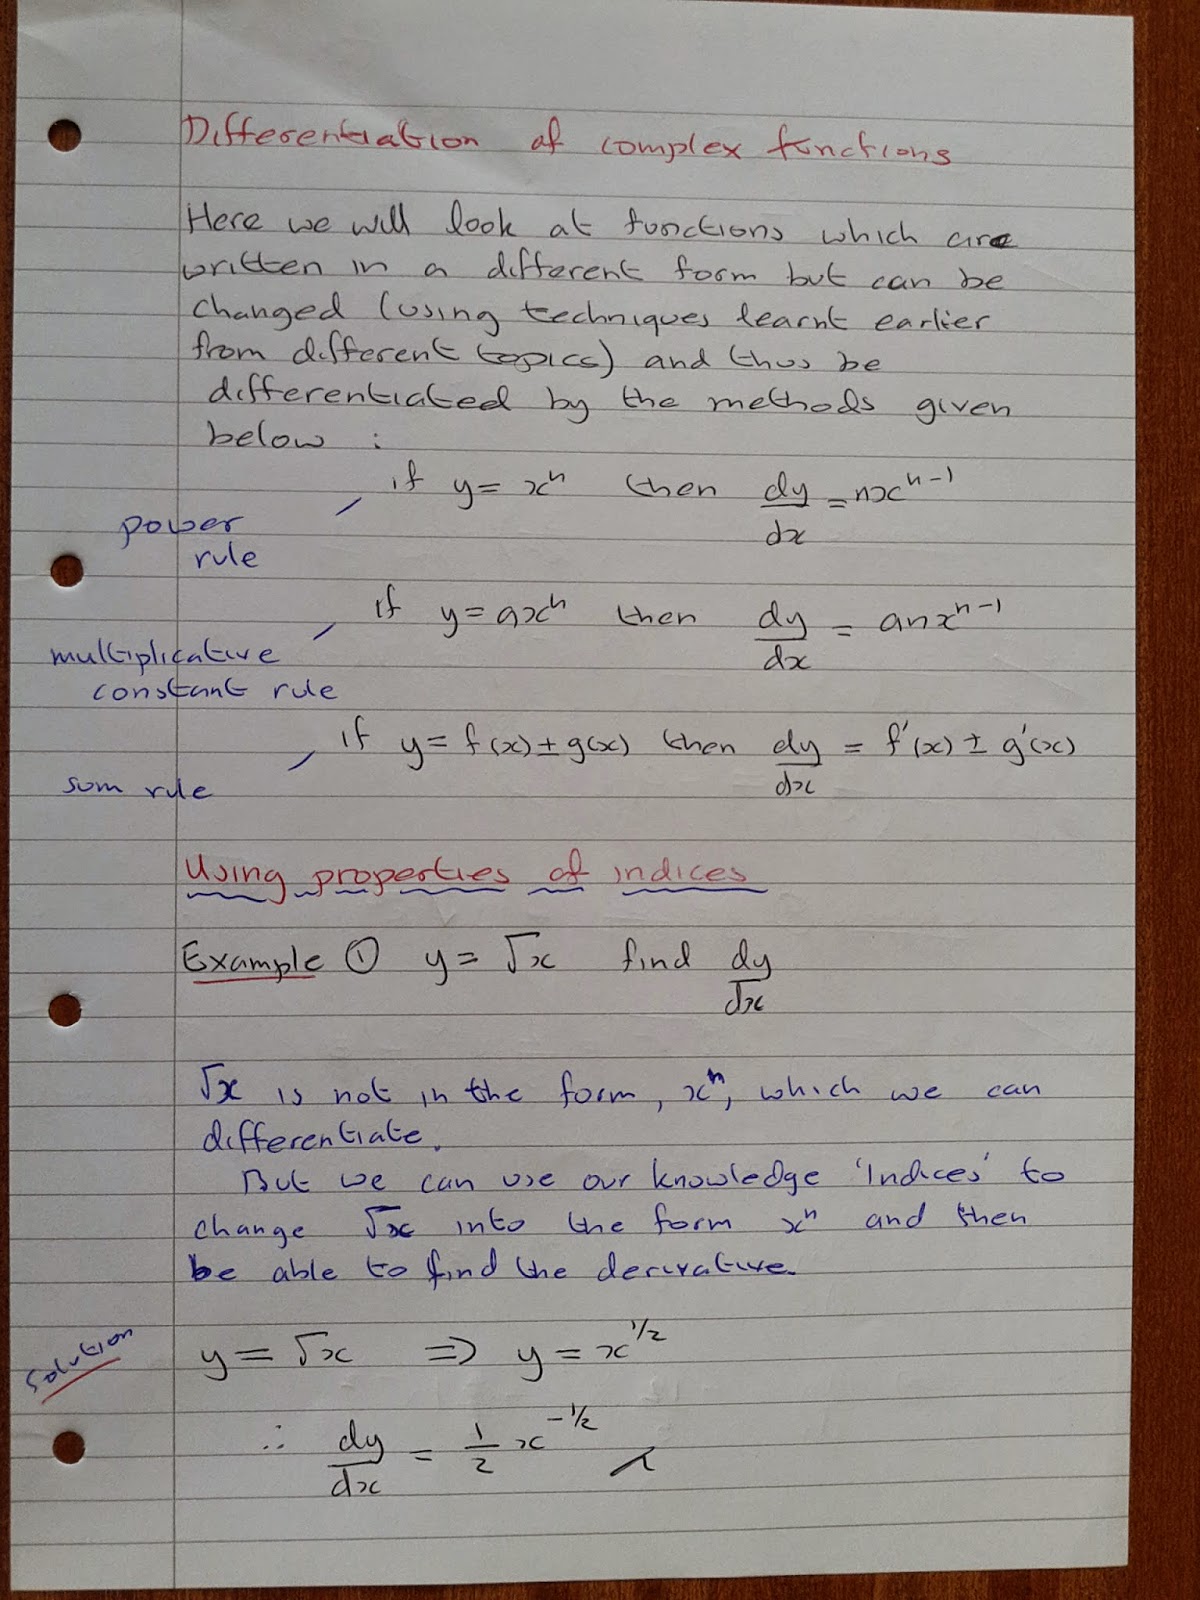 Differentiation of complex functions
Here we will look at functions which are
written in a different form but can be
changed (using techniques learnt earlier
from different topics) and thus be
differentiated by the methods given
below :
if y = xⁿ then dy/dx = nxⁿ⁻¹
power
rule
if y = axⁿ then dy/dx = anxⁿ⁻¹
multiplicative
constant rule
if y = f(x) ± g(x) then dy/dx = f'(x) ± g'(x)
sum rule
Using properties of indices
Example ① y = √x find dy/dx
√x is not in the form, xⁿ, which we can
differentiate.
But we can use our knowledge 'Indices' to
change √x into the form xⁿ and then
be able to find the derivative.
Solution
y = √x ⇒ y = x^1/2
∴ dy/dx = 1/2 x^-1/2